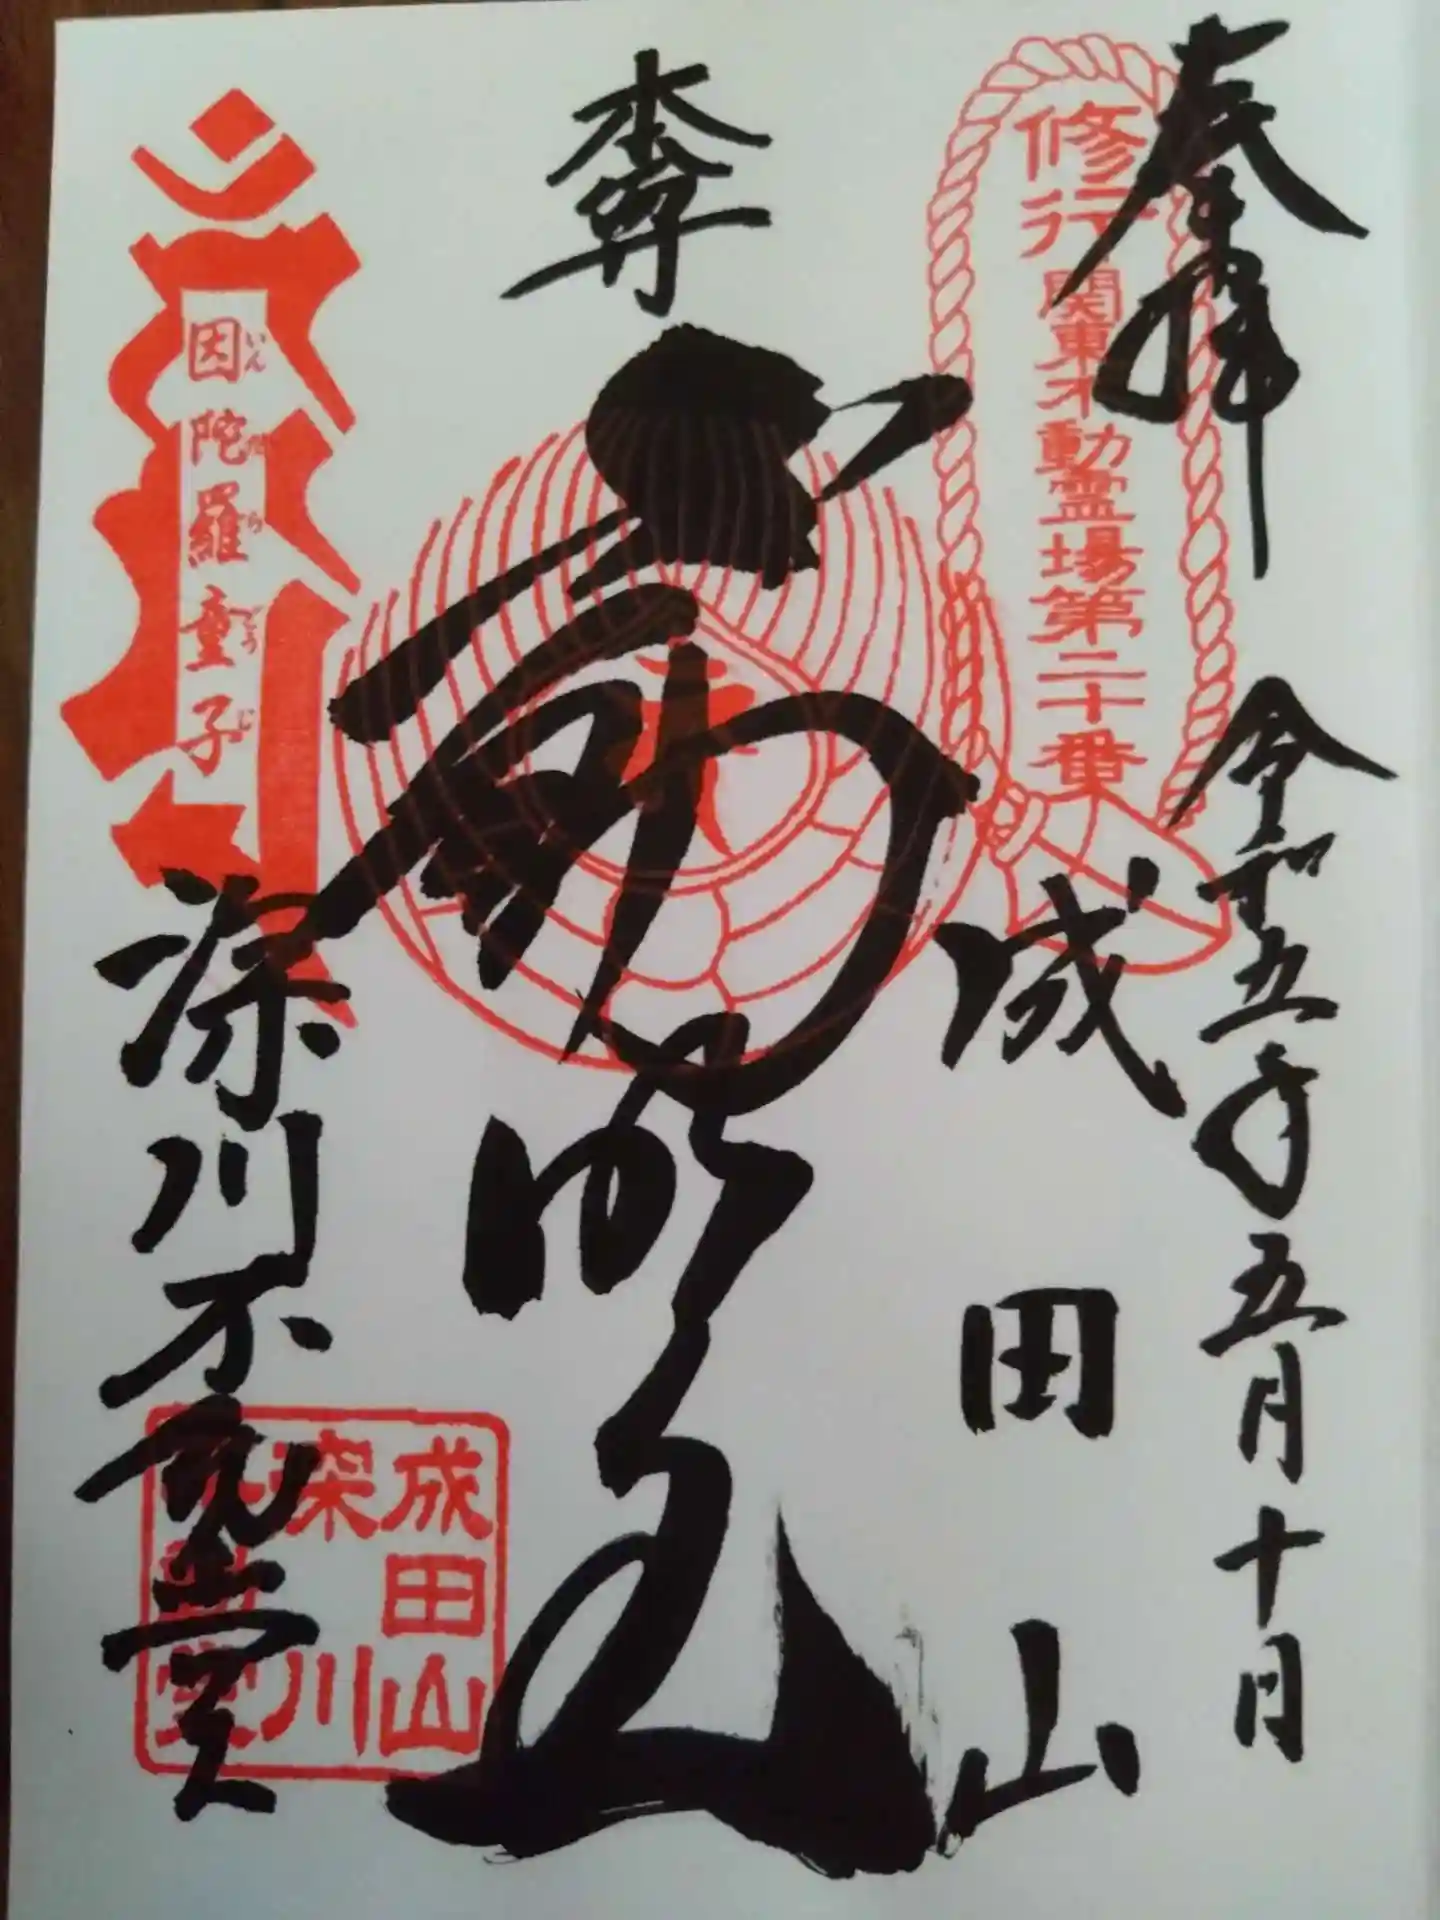 奉拝
令和五年五月十日
修行
関東不動霊場第二十番
成田山
本尊
不動明王
因陀羅童子
いんだらどうじ
深川不動堂
成田山
深川
不動堂